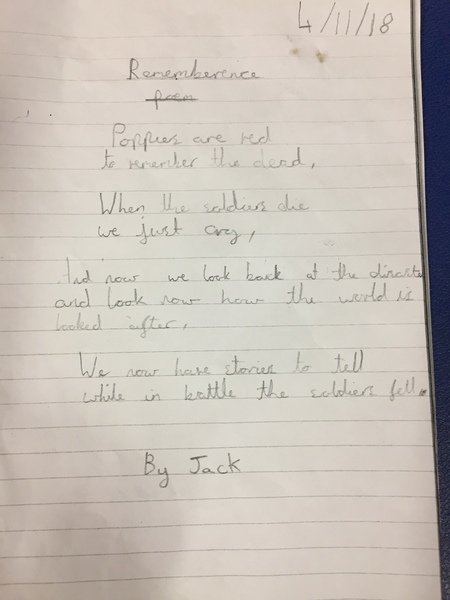 4/11/18
Rememberence
poem
Poppies are red
to remember the dead,
When the soldiers die
we just cry,
And now we look back at the disaster
and look now how the world is
looked after,
We now have stories to tell
while in battle the soldiers fell.
By Jack